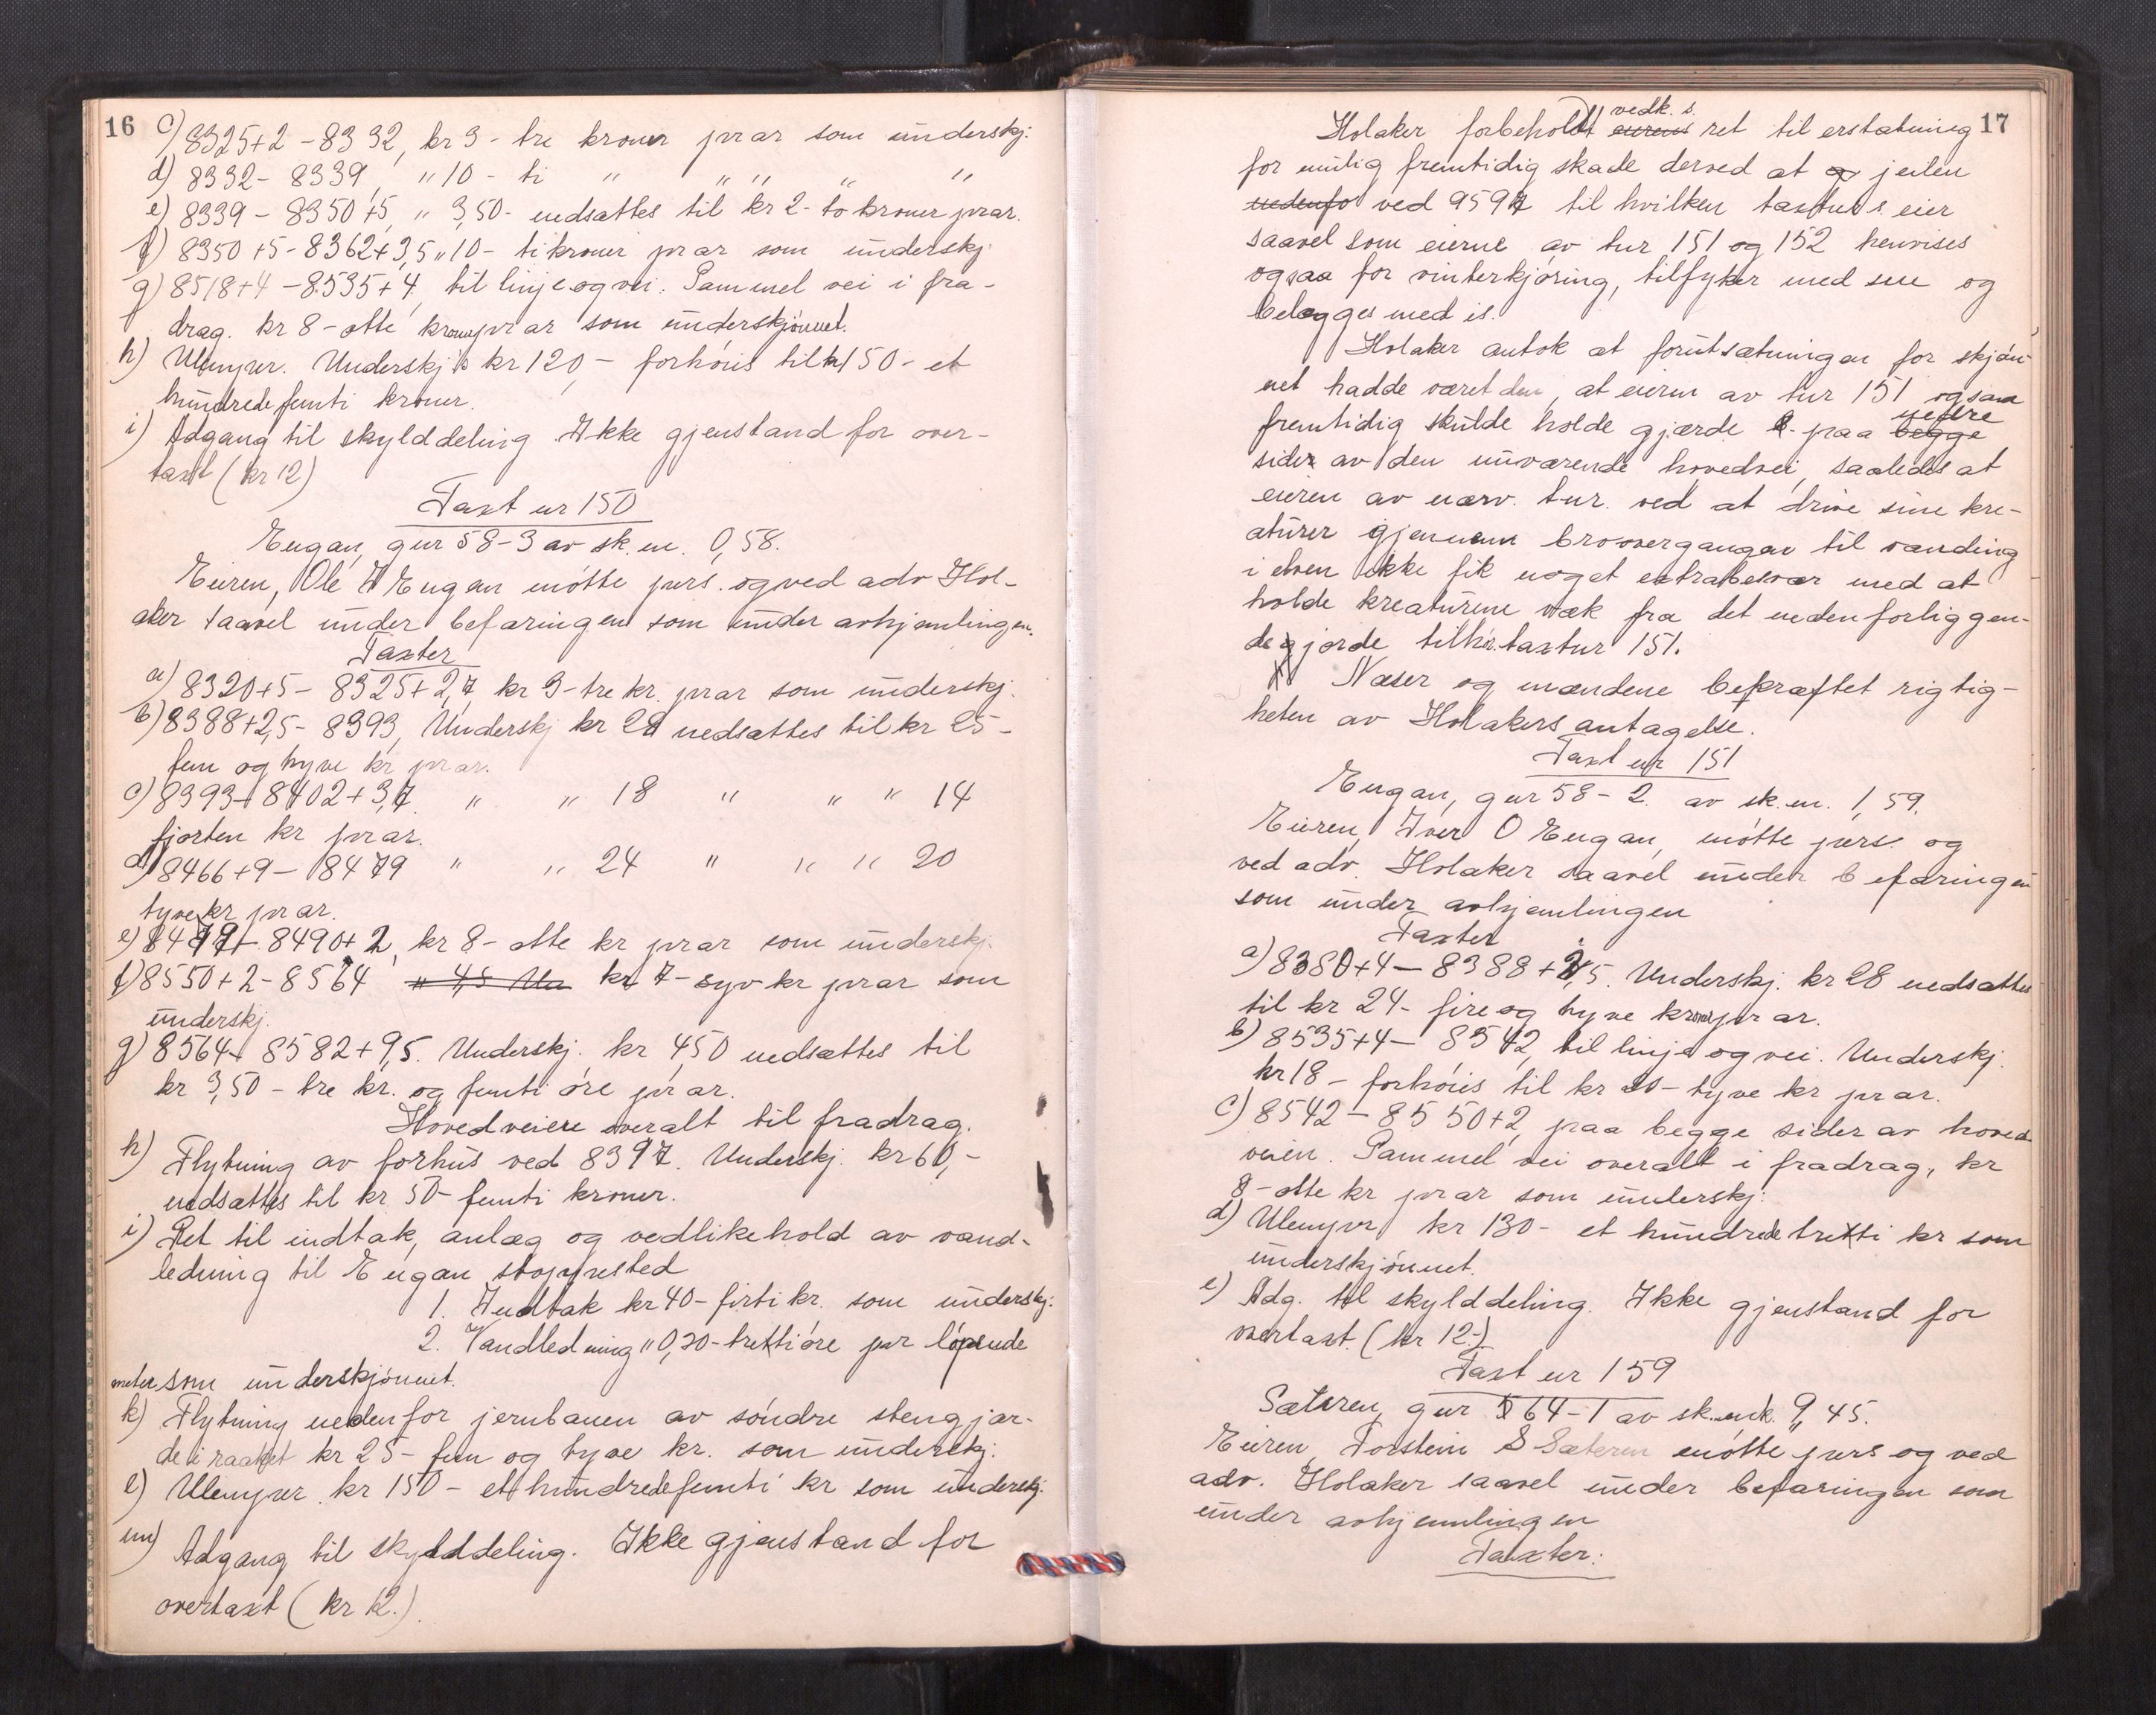 16
c) 8325+2 - 8332, kr 3 - tre kroner pr ar som underskj.
d) 8332 - 8339, " 10 - ti " " " " "
e) 8339 - 8350+5, " 3,50 - nedsættes til kr 2 - to kroner pr ar.
f) 8350+5 - 8362+3,5 " 10 - ti kroner pr ar som underskj.
g) 8518+4 - 8535+4, til linje og vei. Gammel vei i fra-
drag. kr 8 - otte kroner pr ar som underskjönnet.
h) Ulemper. Underskj's kr 120,- forhöies til kr 150 - et
hundrede femti kroner.
i) Adgang til skylddeling. Ikke gjenstand for over-
taxt (kr 12)
Taxt nr 150
Engan, gnr 58-3 av sk.m. 0,58.
Eieren, Ole Engan mötte pers. og ved adv Hol-
aker saavel under befaringen som under avhjemlingen.
Taxter
a) 8320+5 - 8325+2,7 kr 3 - tre kr. pr ar som underskj.
b) 8388+2,5 - 8393, Underskj kr 28 nedsættes til kr 25 -
fem og tyve kr pr ar.
c) 8393 - 8402+3,7. " " 18 " " " 14
fjorten kr pr ar.
d) 8466+9 - 8479 " " 24 " " " 20
tyve kr pr ar.
e) 8479 - 8490+2, kr 8 - otte kr pr ar som underskj.
f) 8550+2 - 8564 " 4,5 Un kr 7 - syv kr pr ar som
underskj.
g) 8564 - 8582+9,5. Underskj. kr 4,50 nedsættes til
kr 3,50 - tre kr. og femti öre pr ar.
Hovedveien overalt til fradrag.
h) Flytning av forhus ved 8397. Underskj. kr 60,-
nedsættes til kr 50 - femti kroner.
i) Ret til indtak, anlæg og vedlikehold av vand-
ledning til Engan stoppested
1. Indtak kr 40 - firti kr. som underskj.
2. Vandledning " 0,30 - tretti öre per löpende
meter som underskjönnet.
k) Flytning nedenfor jernbanen av söndre stengjær-
de i raaket kr 25 - fem og tyve kr. som underskj.
l) Ulemper kr 150 - et hundrede femti kr som underskj.
m) Adgang til skylddeling. Ikke gjenstand for
overtaxt (kr 12.)
17
Holaker forbeholdt eierens vedk.s. ret til erstatning
for mulig fremtidig skade derved at og jeilen
nedenfo ved 9597 til hvilken taxtnr s eier
saavel som eierne av tnr 151 og 152 henvises
ogsaa for vinterkjöring, tilfyker med sne og
belægges med is.
Holaker antok at forutsætningen for skjön-
net hadde været den, at eieren av tnr 151 ogsaa
fremtidig skulde holde gjærde paa begge nedre
side av den nuværende hovedvei, saaledes at
eieren av nærv. tnr. ved at drive sine kre-
aturer gjennem broovergangen til vanding
i elven ikke fik noget extrabesvær med at
holde kreaturene væk fra det nedenforliggen-
de gjorde tilhör. taxtnr 151.
Næser og mændene bekræftet rigtig-
heten av Holakers antagelse.
Taxt nr 151
Engan, gnr 58-2. av sk.m. 1,59.
Eieren, Iver O Engan, mötte pers. og
ved adv. Holaker saavel under befaringen
som under avhjemlingen
Taxter
a) 8380+4 - 8388+2,5. Underskj. kr 28 nedsættes
til kr 24 - fire og tyve kroner pr ar.
b) 8535+4 - 8542, til linje og vei. Underskj.
kr 18 - forhöies til kr 20 - tyve kr pr ar.
c) 8542 - 8550+2, paa begge sider av hoved
veien. Gammel vei overalt i fradrag, kr
8 - otte kr pr ar som underskj.
d) Ulemper kr 130 - et hundrede tretti kr som
underskjönnet.
e) Adg. til skylddeling. Ikke gjenstand for
overtaxt. (kr 12-)
Taxt nr 159
Sæteren, gnr 64-1 av sk. mk. 9,45.
Eieren Torstein S Sæteren mötte pers og ved
adv. Holaker saavel under befaringen som
under avhjemlingen
Taxter: